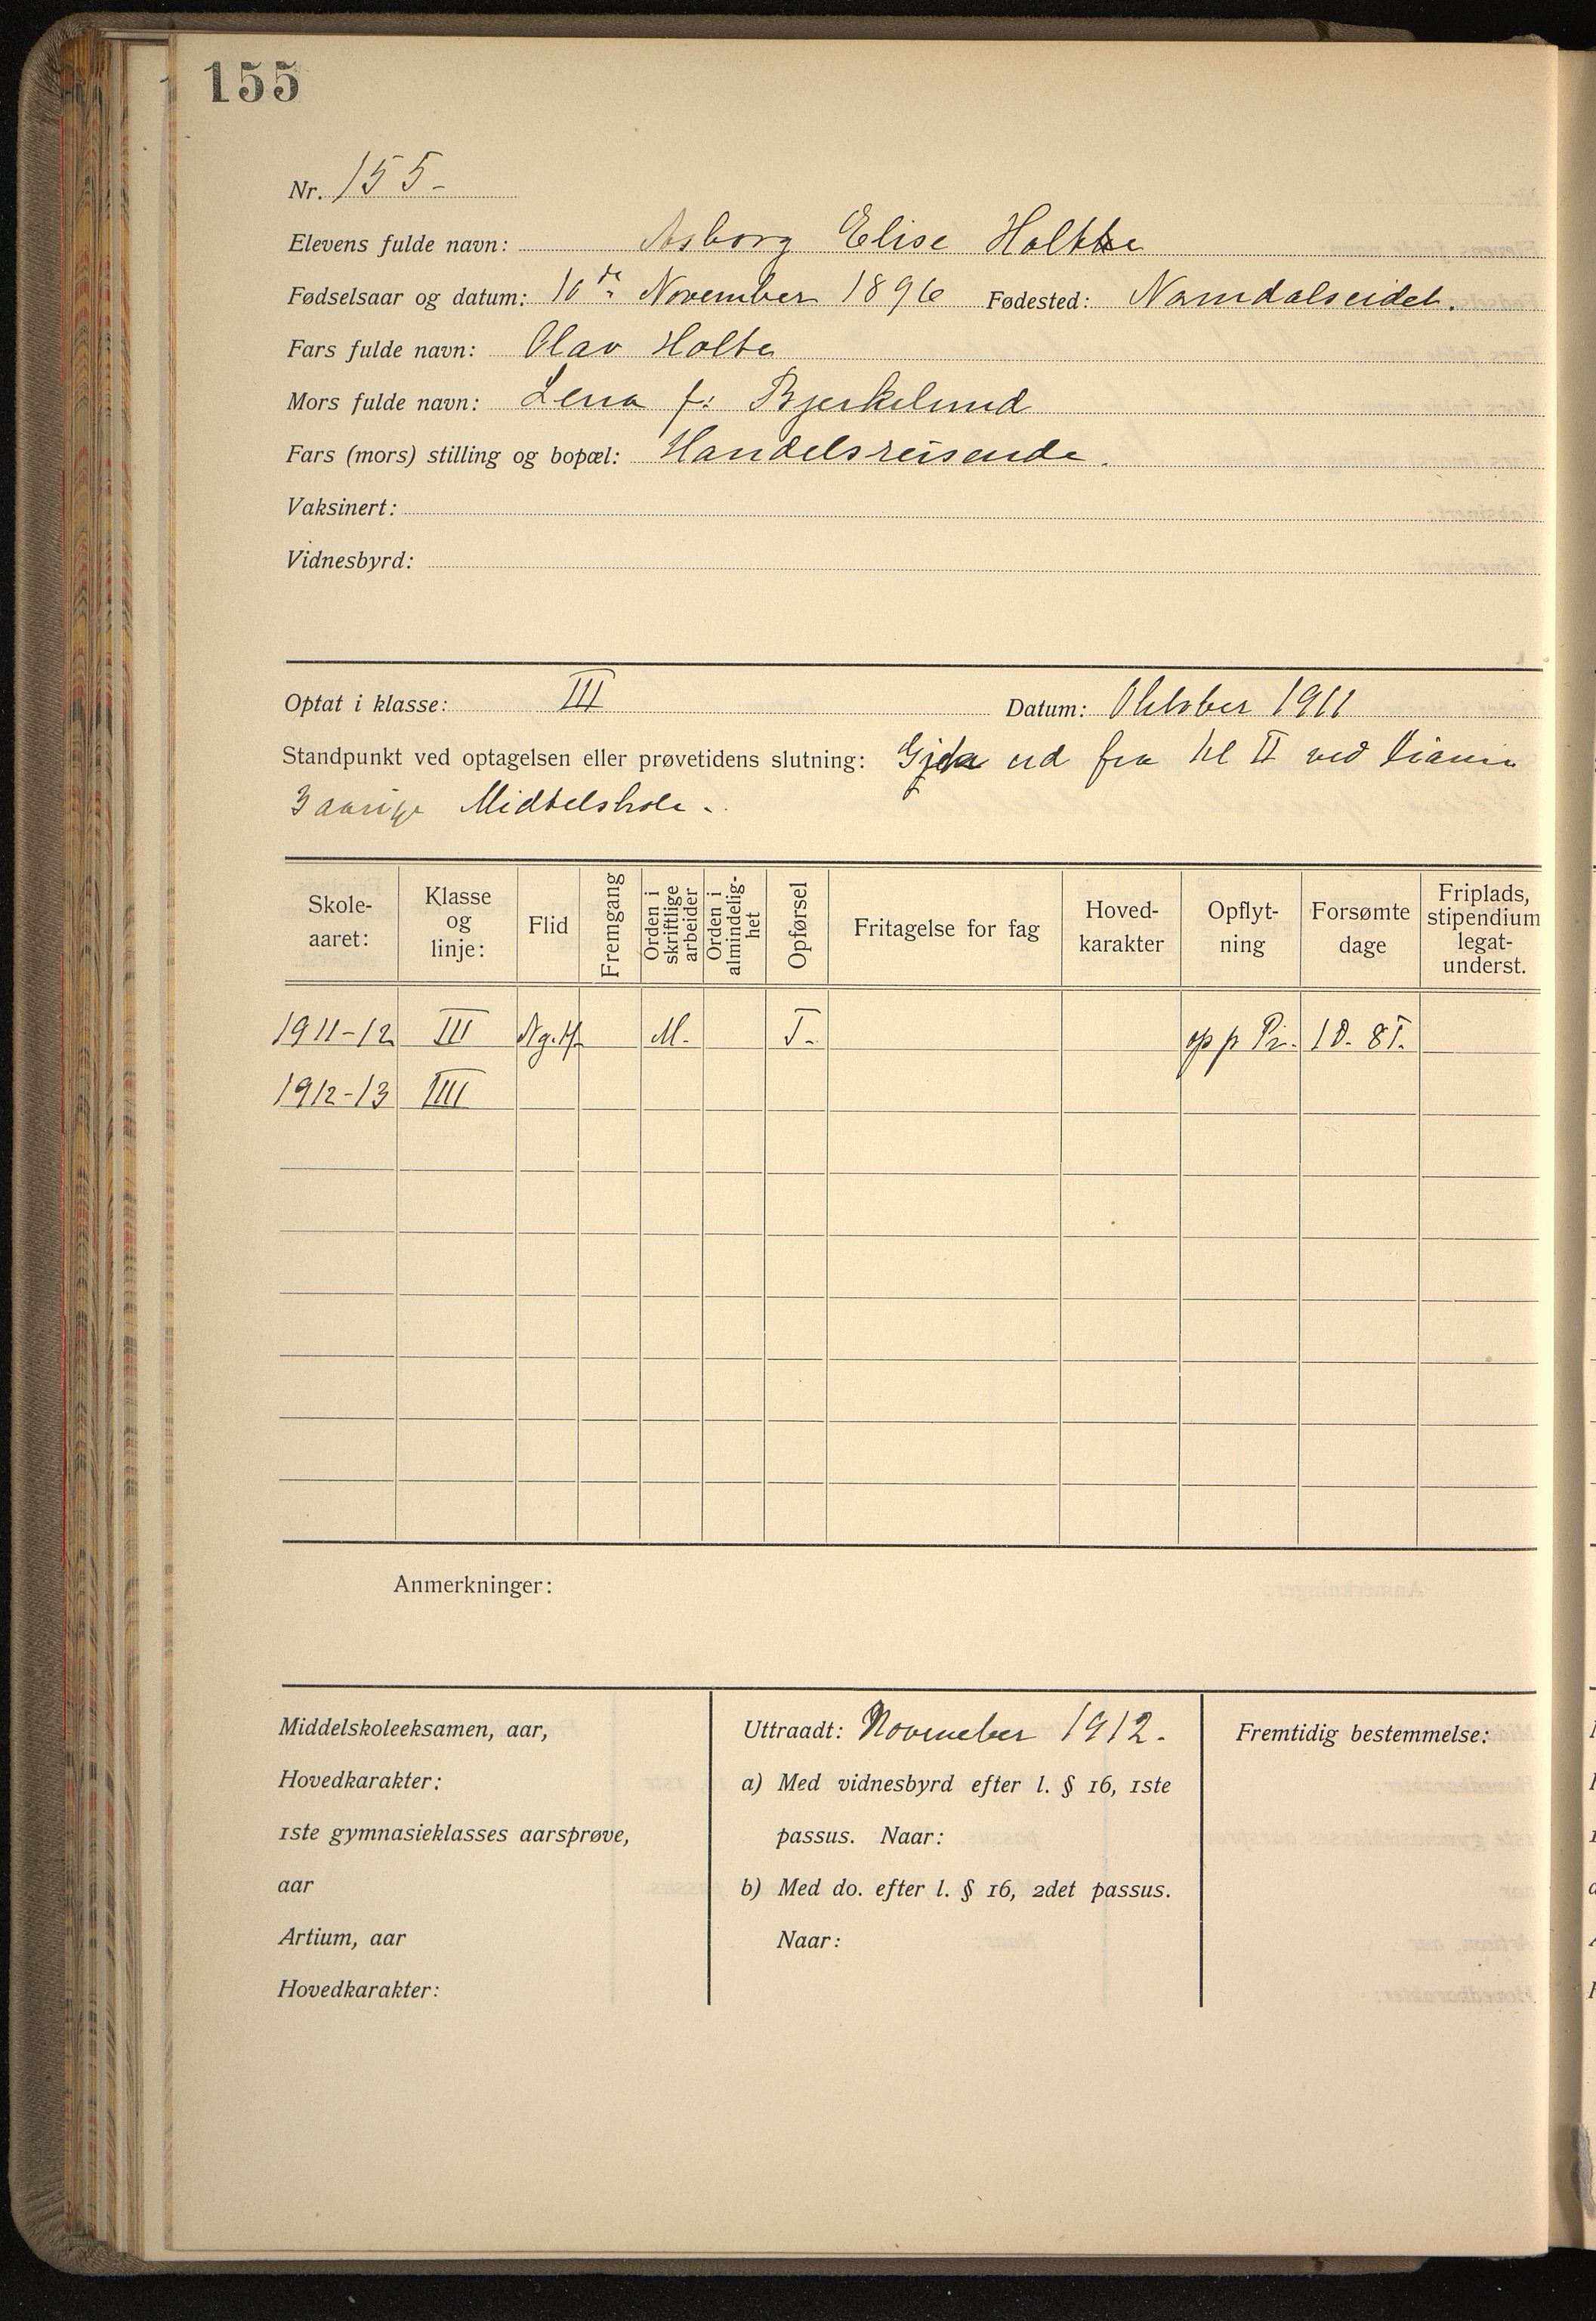 155
Nr. 155-
Elevens fulde navn: Asborg Elise Holthe
Fødselsaar og datum: 10de November 1896 Fødested: Namdalseidet.
Fars fulde navn: Olav Holte
Mors fulde navn: Lena f: Bjerkelund
Fars (mors) stilling og bopæl: Handelsreisende.
Vaksinert:
Vidnesbyrd:
Optat i klasse: III Datum: Oktober 1911
Standpunkt ved optagelsen eller prøvetidens slutning: ud fra kl II ved
3 aarige Middelskole -
Skole-aaret: Klasse og linje: Flid Fremgang Orden i skriftlige arbeider Orden i almindelig-het Opførsel Fritagelse for fag Hoved-karakter Opflyt-ning Forsømte dage Friplads, stipendium legat-underst.
1911-12 III Ng. M. T. op p Pr. 1D. 8T.
1912-13 IIII
Anmerkninger:
Middelskoleeksamen, aar,
Hovedkarakter:
1ste gymnasieklasses aarsprøve,
aar
Artium, aar
Hovedkarakter:
Uttraadt: November 1912.
a) Med vidnesbyrd efter l. § 16, 1ste
passus. Naar:
b) Med do. efter l. § 16, 2det passus.
Naar:
Fremtidig bestemmelse: